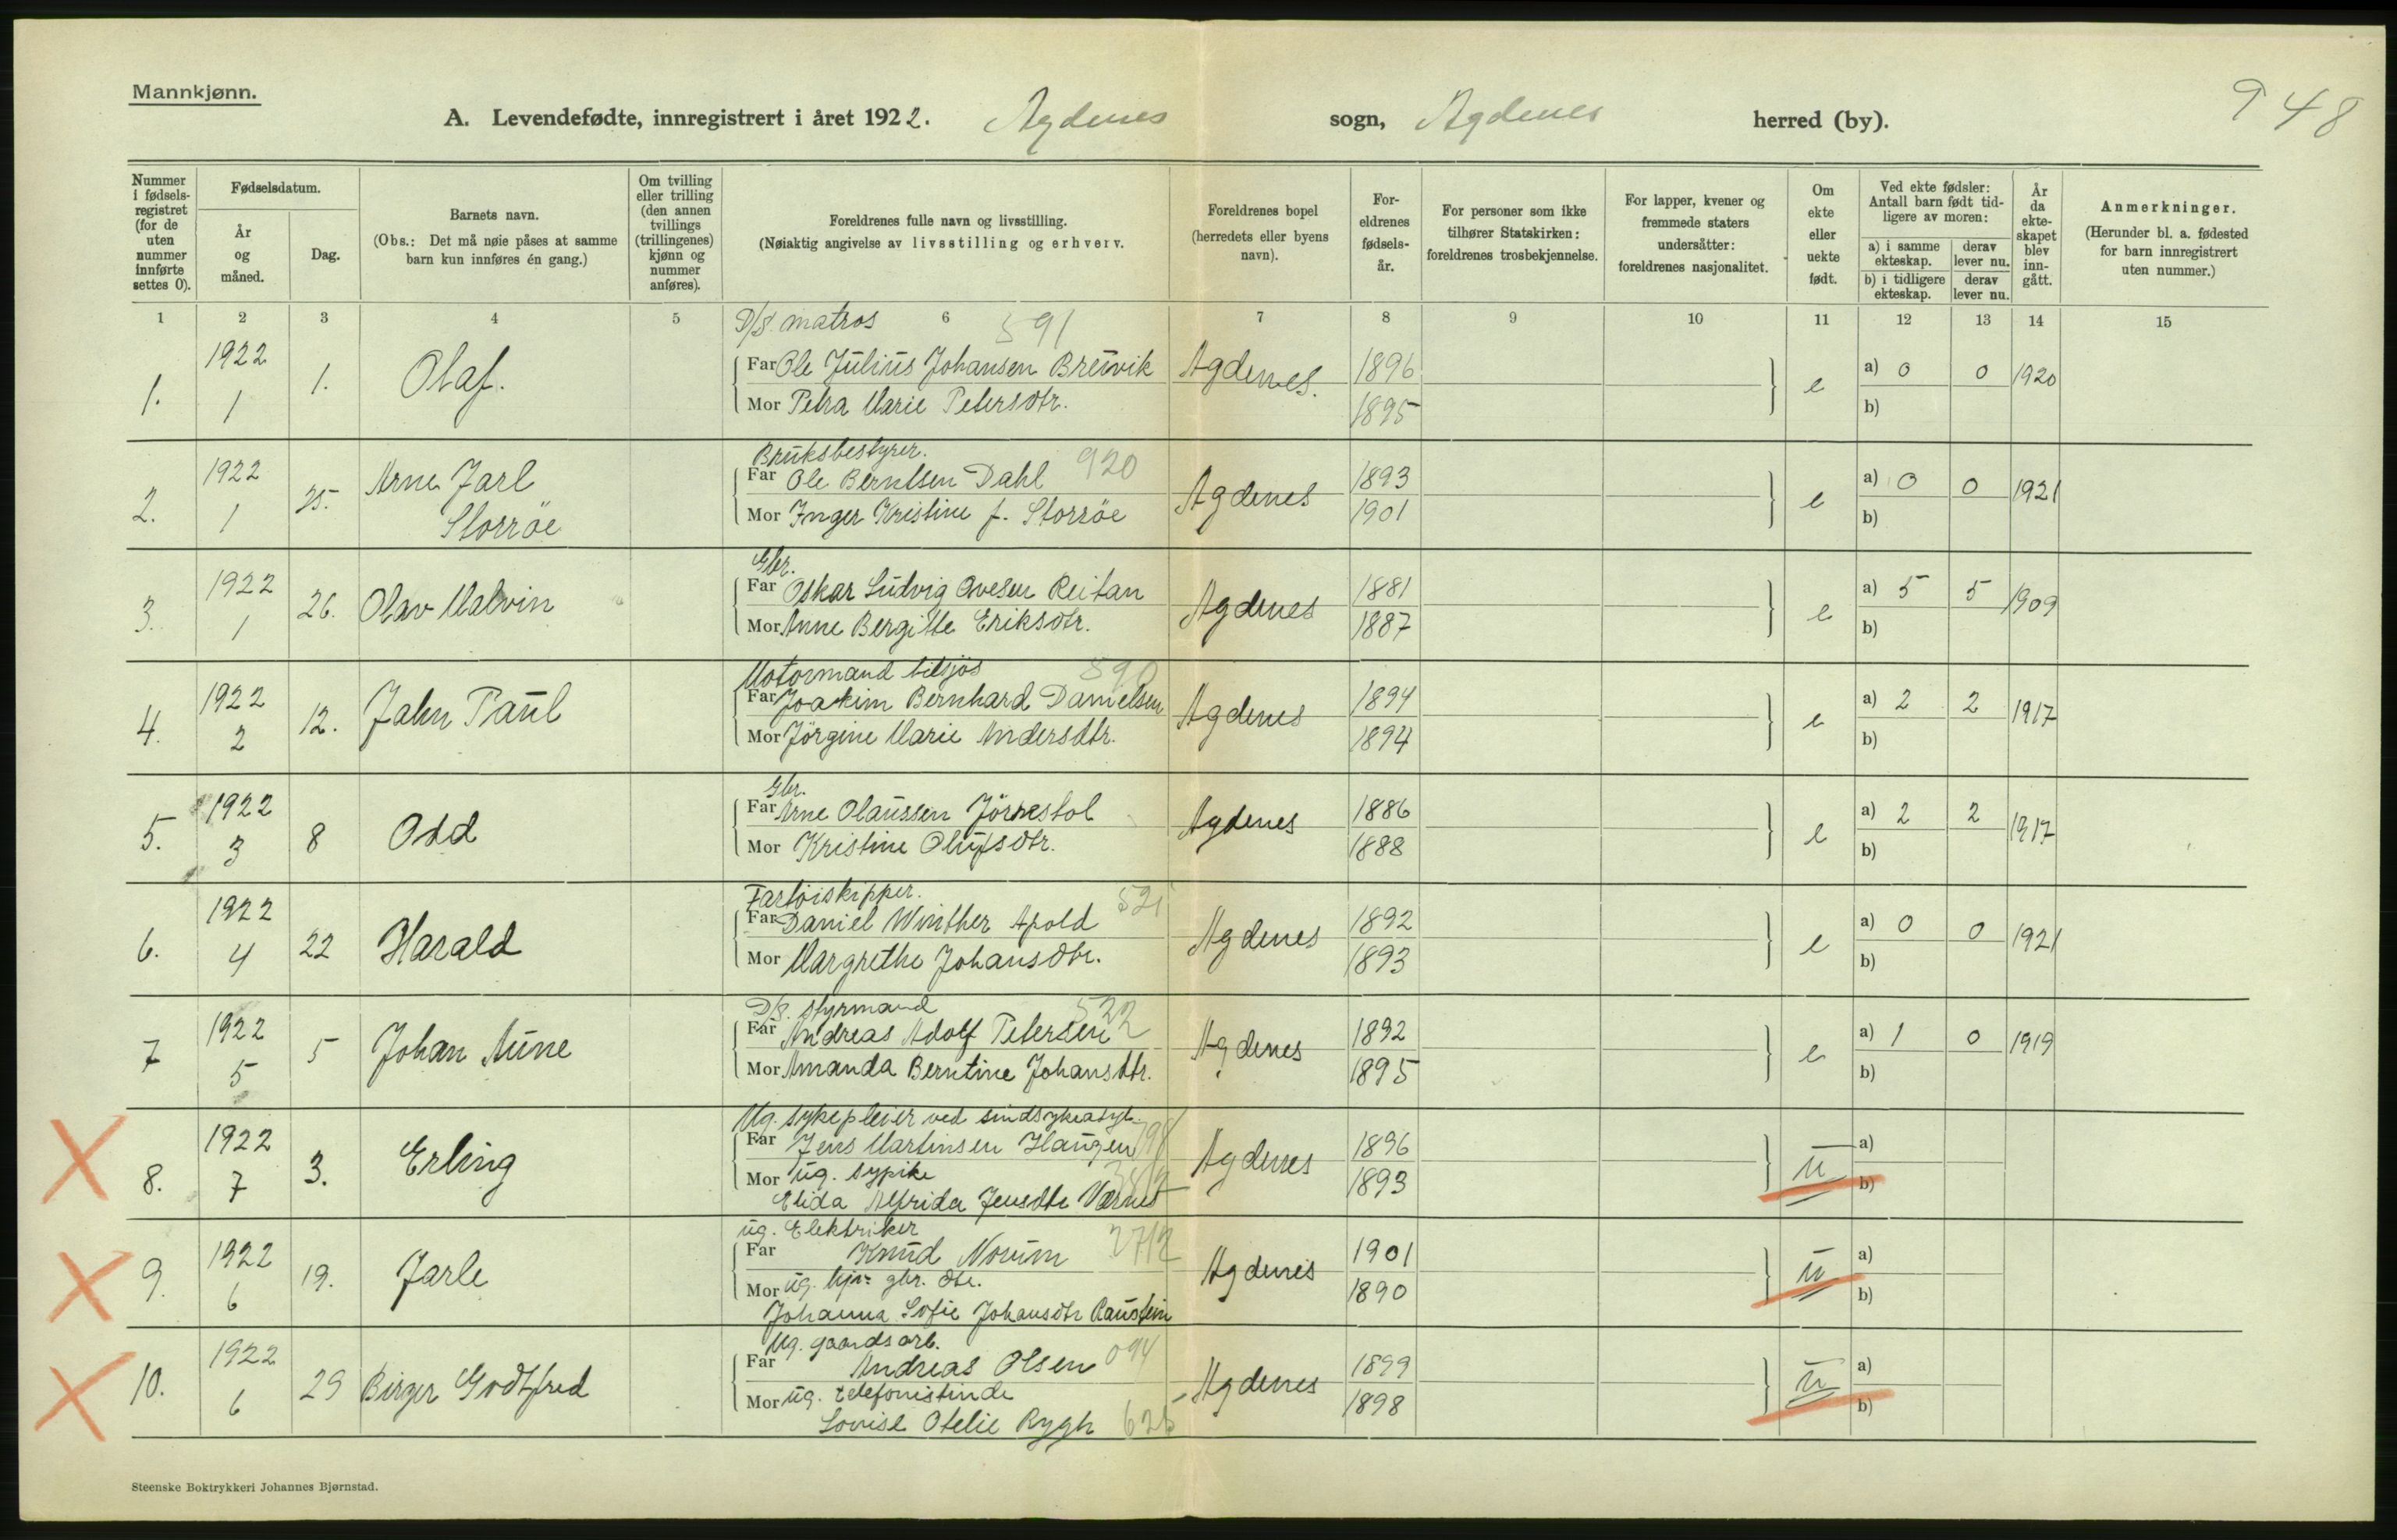 Mannkjønn.
A. Levendefødte, innregistrert i året 1922. Agdenes sogn, Agdenes herred (by).
948
Nummer i fødselsregistret (for de uten nummer innførte settes 0).
Fødselsdatum.
År og måned.
Dag.
Barnets navn.
(Obs.: Det må nøie påses at samme barn kun innføres én gang.)
Om tvilling eller trilling (den annen tvillings (trillingenes) kjønn og nummer anføres).
Foreldrenes fulle navn og livsstilling.
(Nøiaktig angivelse av livsstilling og erhverv.
Foreldrenes bopel (herredets eller byens navn).
Foreldrenes fødselsår.
For personer som ikke tilhører Statskirken: foreldrenes trosbekjennelse.
For lapper, kvener og fremmede staters undersåtter: foreldrenes nasjonalitet.
Om ekte eller uekte født.
Ved ekte fødsler: Antall barn født tidligere av moren:
a) i samme ekteskap.
derav lever nu.
b) i tidligere ekteskap.
derav lever nu.
År da ekteskapet blev inngått.
Anmerkninger.
(Herunder bl. a. fødested for barn innregistrert uten nummer.)
1 2 3 4 5 6 7 8 9 10 11 12 13 14 15
D/S. matros 591
1. 1922 1 1. Olaf. Far Ole Julius Johansen Breivik Agdenes. 1896 e a) 0 0 1920
Mor Petra Marie Petersdtr. 1895 b)
Bruksbestyrer. 920
2. 1922 1 25. Arne Jarl Storröe Far Ole Berntsen Dahl Agdenes 1893 e a) 0 0 1921
Mor Inger Kristine f. Storröe 1901 b)
Gbr.
3. 1922 1 26. Olav Malvin Far Oskar Ludvig Ovesen Reitan Agdenes 1881 e a) 5 5 1909
Mor Anne Bergitte Eriksdtr. 1887 b)
Motormand tilsjös 590
4. 1922 2 12. Jahn Paul Far Joakim Bernhard Danielsen Agdenes 1894 e a) 2 2 1917
Mor Jörgine Marie Andersdtr. 1894 b)
Gbr.
5. 1922 3 8 Odd Far Arne Olaussen Jörnestol Agdenes 1886 e a) 2 2 1917
Mor Kristine Olufsdtr. 1888 b)
Fartöiskipper. 521
6. 1922 4 22 Harald Far Daniel Winther Apold Agdenes 1892 e a) 0 0 1921
Mor Margrethe Johansdtr. 1893 b)
D/S. styrmand 522
7 1922 5 5 Johan Aune Far Andreas Adolf Petersen Agdenes 1892 e a) 1 0 1919
Mor Amanda Berntine Johansdtr. 1895 b)
Ug. sykepleier ved sindsykeasyl.
8. 1922 7 3. Erling Far Jens Martinsen Haugen Agdenes 1896 u a)
Mor ug. sypike 1893 b)
Elida Alfrida Jensdtr Værnes
ug. Elektriker
9. 1922 6 19. Jarle Far Knud Norum 2712 Agdenes 1901 u a)
Mor ug. hjv. gbr. dtr. 1890 b)
Johanna Sofie Johansdtr Raustein
Ug. gaardsarb.
10. 1922 6 29 Birger Godtfred Far Andreas Olsen 094 Agdenes 1899 u a)
Mor ug. telefonistinde 1898 b)
Lovise Otelie Rygh 626
Steenske Boktrykkeri Johannes Bjørnstad.